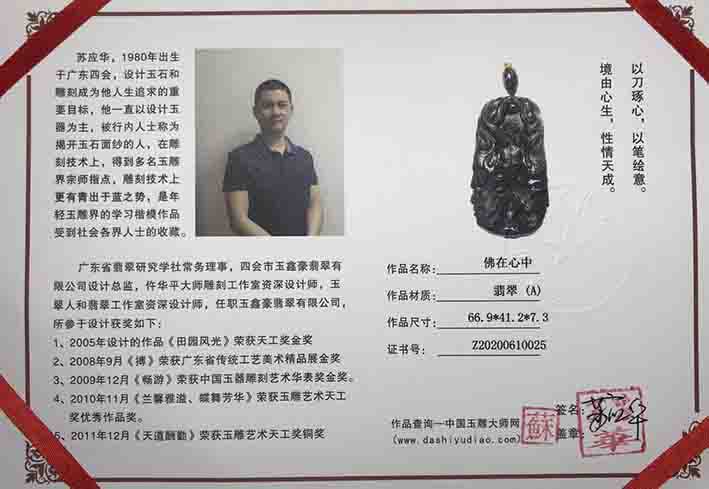 苏应华，1980年出生
于广东四会，设计玉石和
雕刻成为他人生追求的重
要目标，他一直以设计玉
器为主，被行内人士称为
揭开玉石面纱的人，在雕
刻技术上，得到多名玉雕
界宗师指点，雕刻技术上
更有青出于蓝之势，是年
轻玉雕界的学习楷模作品
受到社会各界人士的收藏。
广东省翡翠研究学社常务理事，四会市玉鑫豪翡翠有
限公司设计总监，仵华平大师雕刻工作室资深设计师，玉
翠人和翡翠工作室资深设计师，任职玉鑫豪翡翠有限公司，
所参于设计获奖如下：
1、2005年设计的作品《田园风光》荣获天工奖金奖
2、2008年9月《搏》荣获广东省传统工艺美术精品展金奖
3、2009年12月《畅游》荣获中国玉器雕刻艺术华表奖金奖。
4、2010年11月《兰馨雅溢、蝶舞芳华》荣获玉雕艺术天工
奖优秀作品奖。
5、2011年12月《天道酬勤》荣获玉雕艺术天工奖铜奖
以刀琢心，以笔绘意。
境由心生，性情天成。
作品名称： 佛在心中
作品材质： 翡翠 (A)
作品尺寸： 66.9*41.2*7.3
证书号： Z20200610025
作品查询—中国玉雕大师网
(www.dashiyudiao.com)
蘇
签名：
盖章：
華